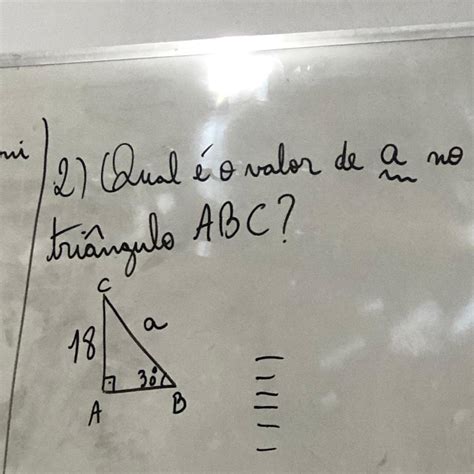 2) Qual é o valor de a no
triângulo ABC?
C
18
a
30°
A
B